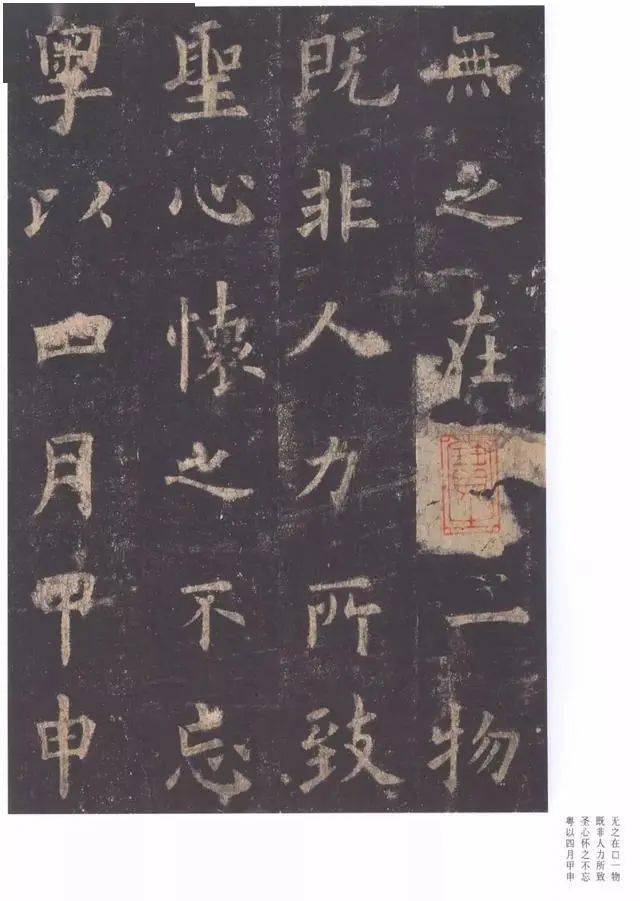 無之在一物
既非人力所致
聖心懷之不忘
粤以四月甲申
无之在口一物
既非人力所致
圣心怀之不忘
粤以四月甲申